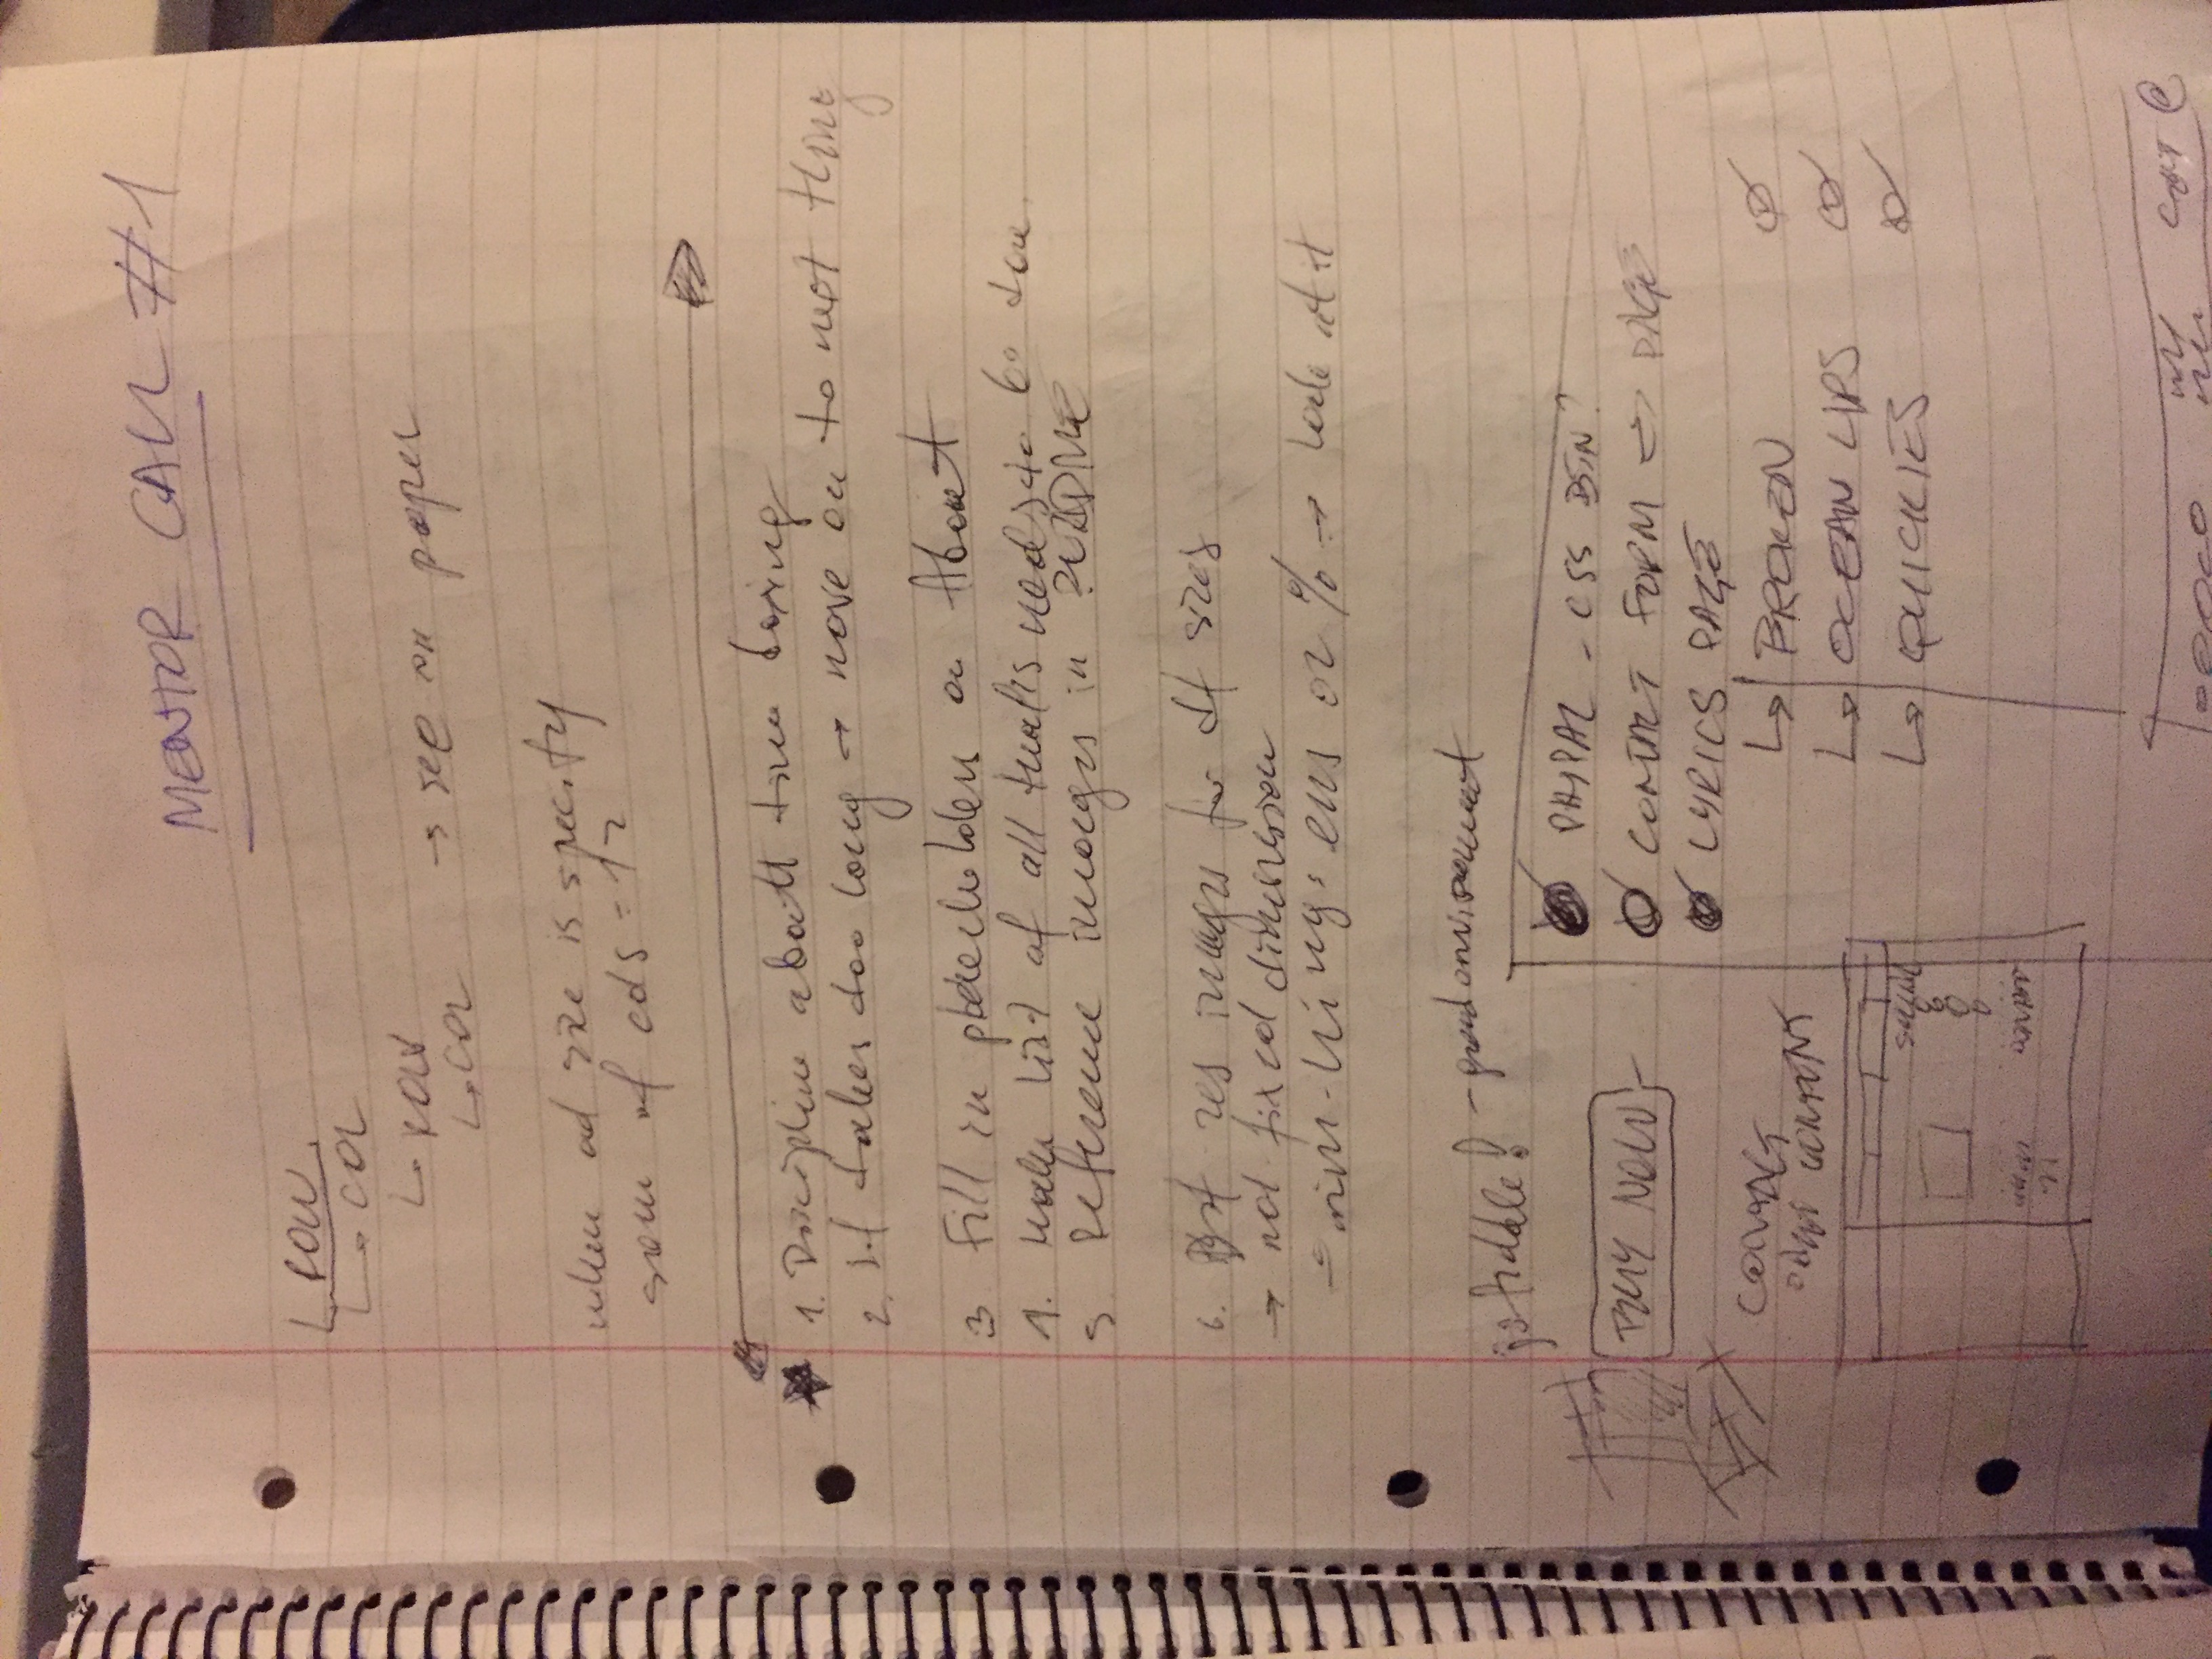 MENTOR CALL #1
ROW
COL
ROW
COL → see on paper
when col size is specify
sum of cols = 12
1. Discipline about time boxing
2. If takes too long → move on to next thing
3 Fill in placeholders on About
4. Make list of all that's needs to be done
5 Reference images in README
6. res images for sizes
→ not fixed dimension
ems or % → look at it
jsfiddle! - good environment
PAYPAL - CSS BTN?
BUY NOW
CONTACT FORM PAGE
LYRICS PAGE
CONTACT
CONTENT
BROKEN
OCEAN LIPS
QUICKIES